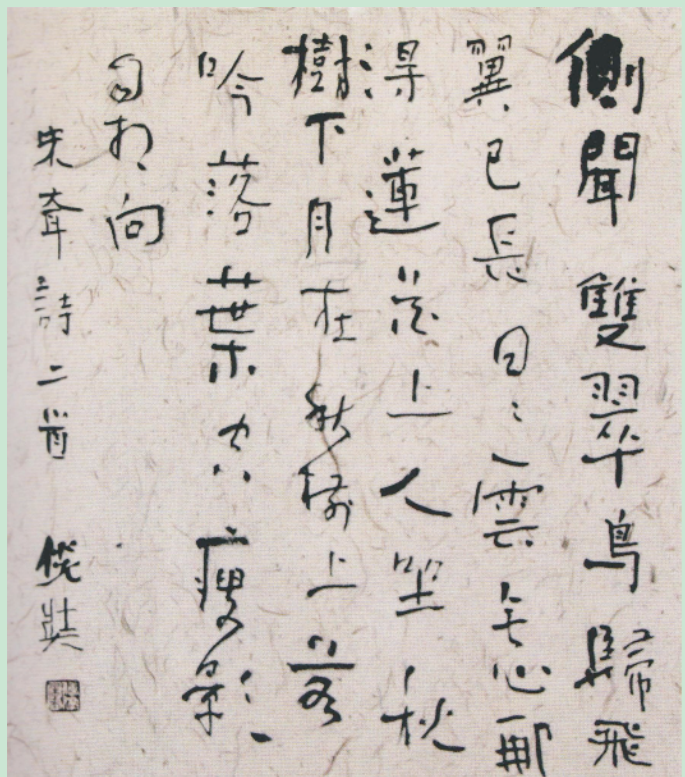 側聞雙翠鳥歸飛
翼已長日〻雲無心那
得蓮花上人坐秋
樹下月在秋樹上落
吟落葉瘦影
自相向
朱耷詩二首